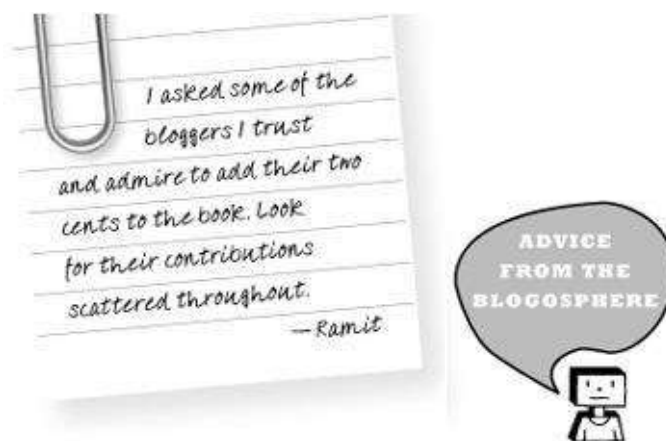 I asked some of the
bloggers I trust
and admire to add their two
cents to the book. Look
for their contributions
scattered throughout.
— Ramit
ADVICE
FROM THE
BLOGOSPHERE